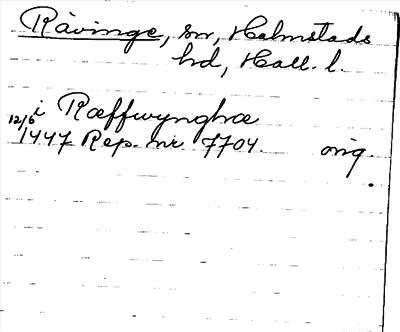 Råvinge, sn, Halmstads
hd, Hall. l.
i Ræffwynghæ
12/6 1447 Rep. nr. 7704. orig.